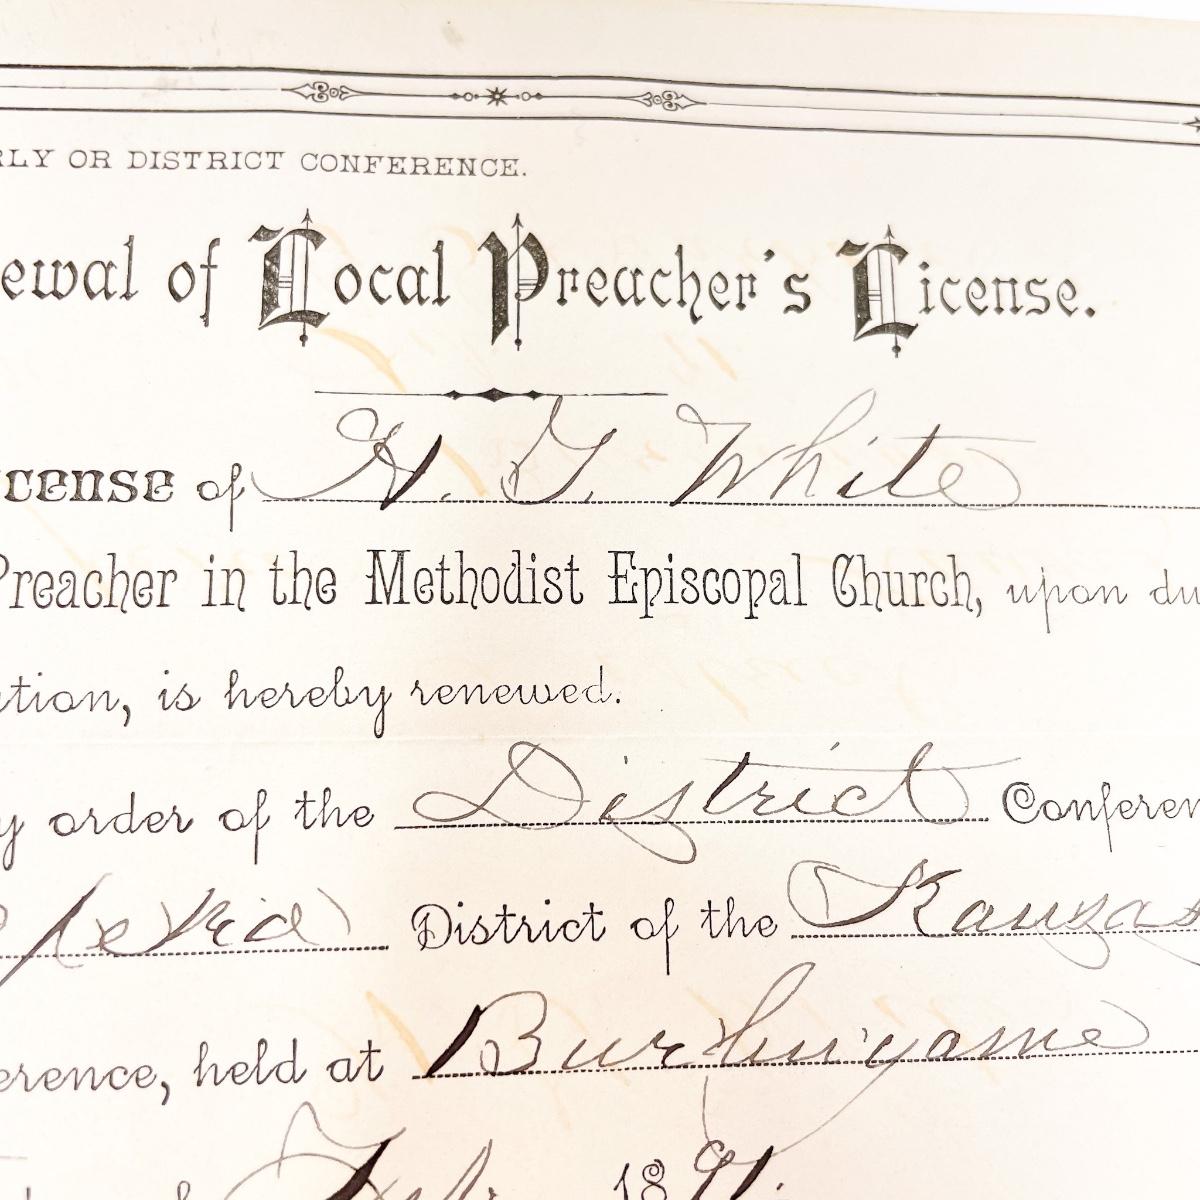 RLY OR DISTRICT CONFERENCE.
ewal of Local Preacher's License.
cense of H. G. White
Preacher in the Methodist Episcopal Church, upon du
ation, is hereby renewed.
y order of the District Conferen
District of the Kansas
erence, held at Burlingame
of Feb. 1891.